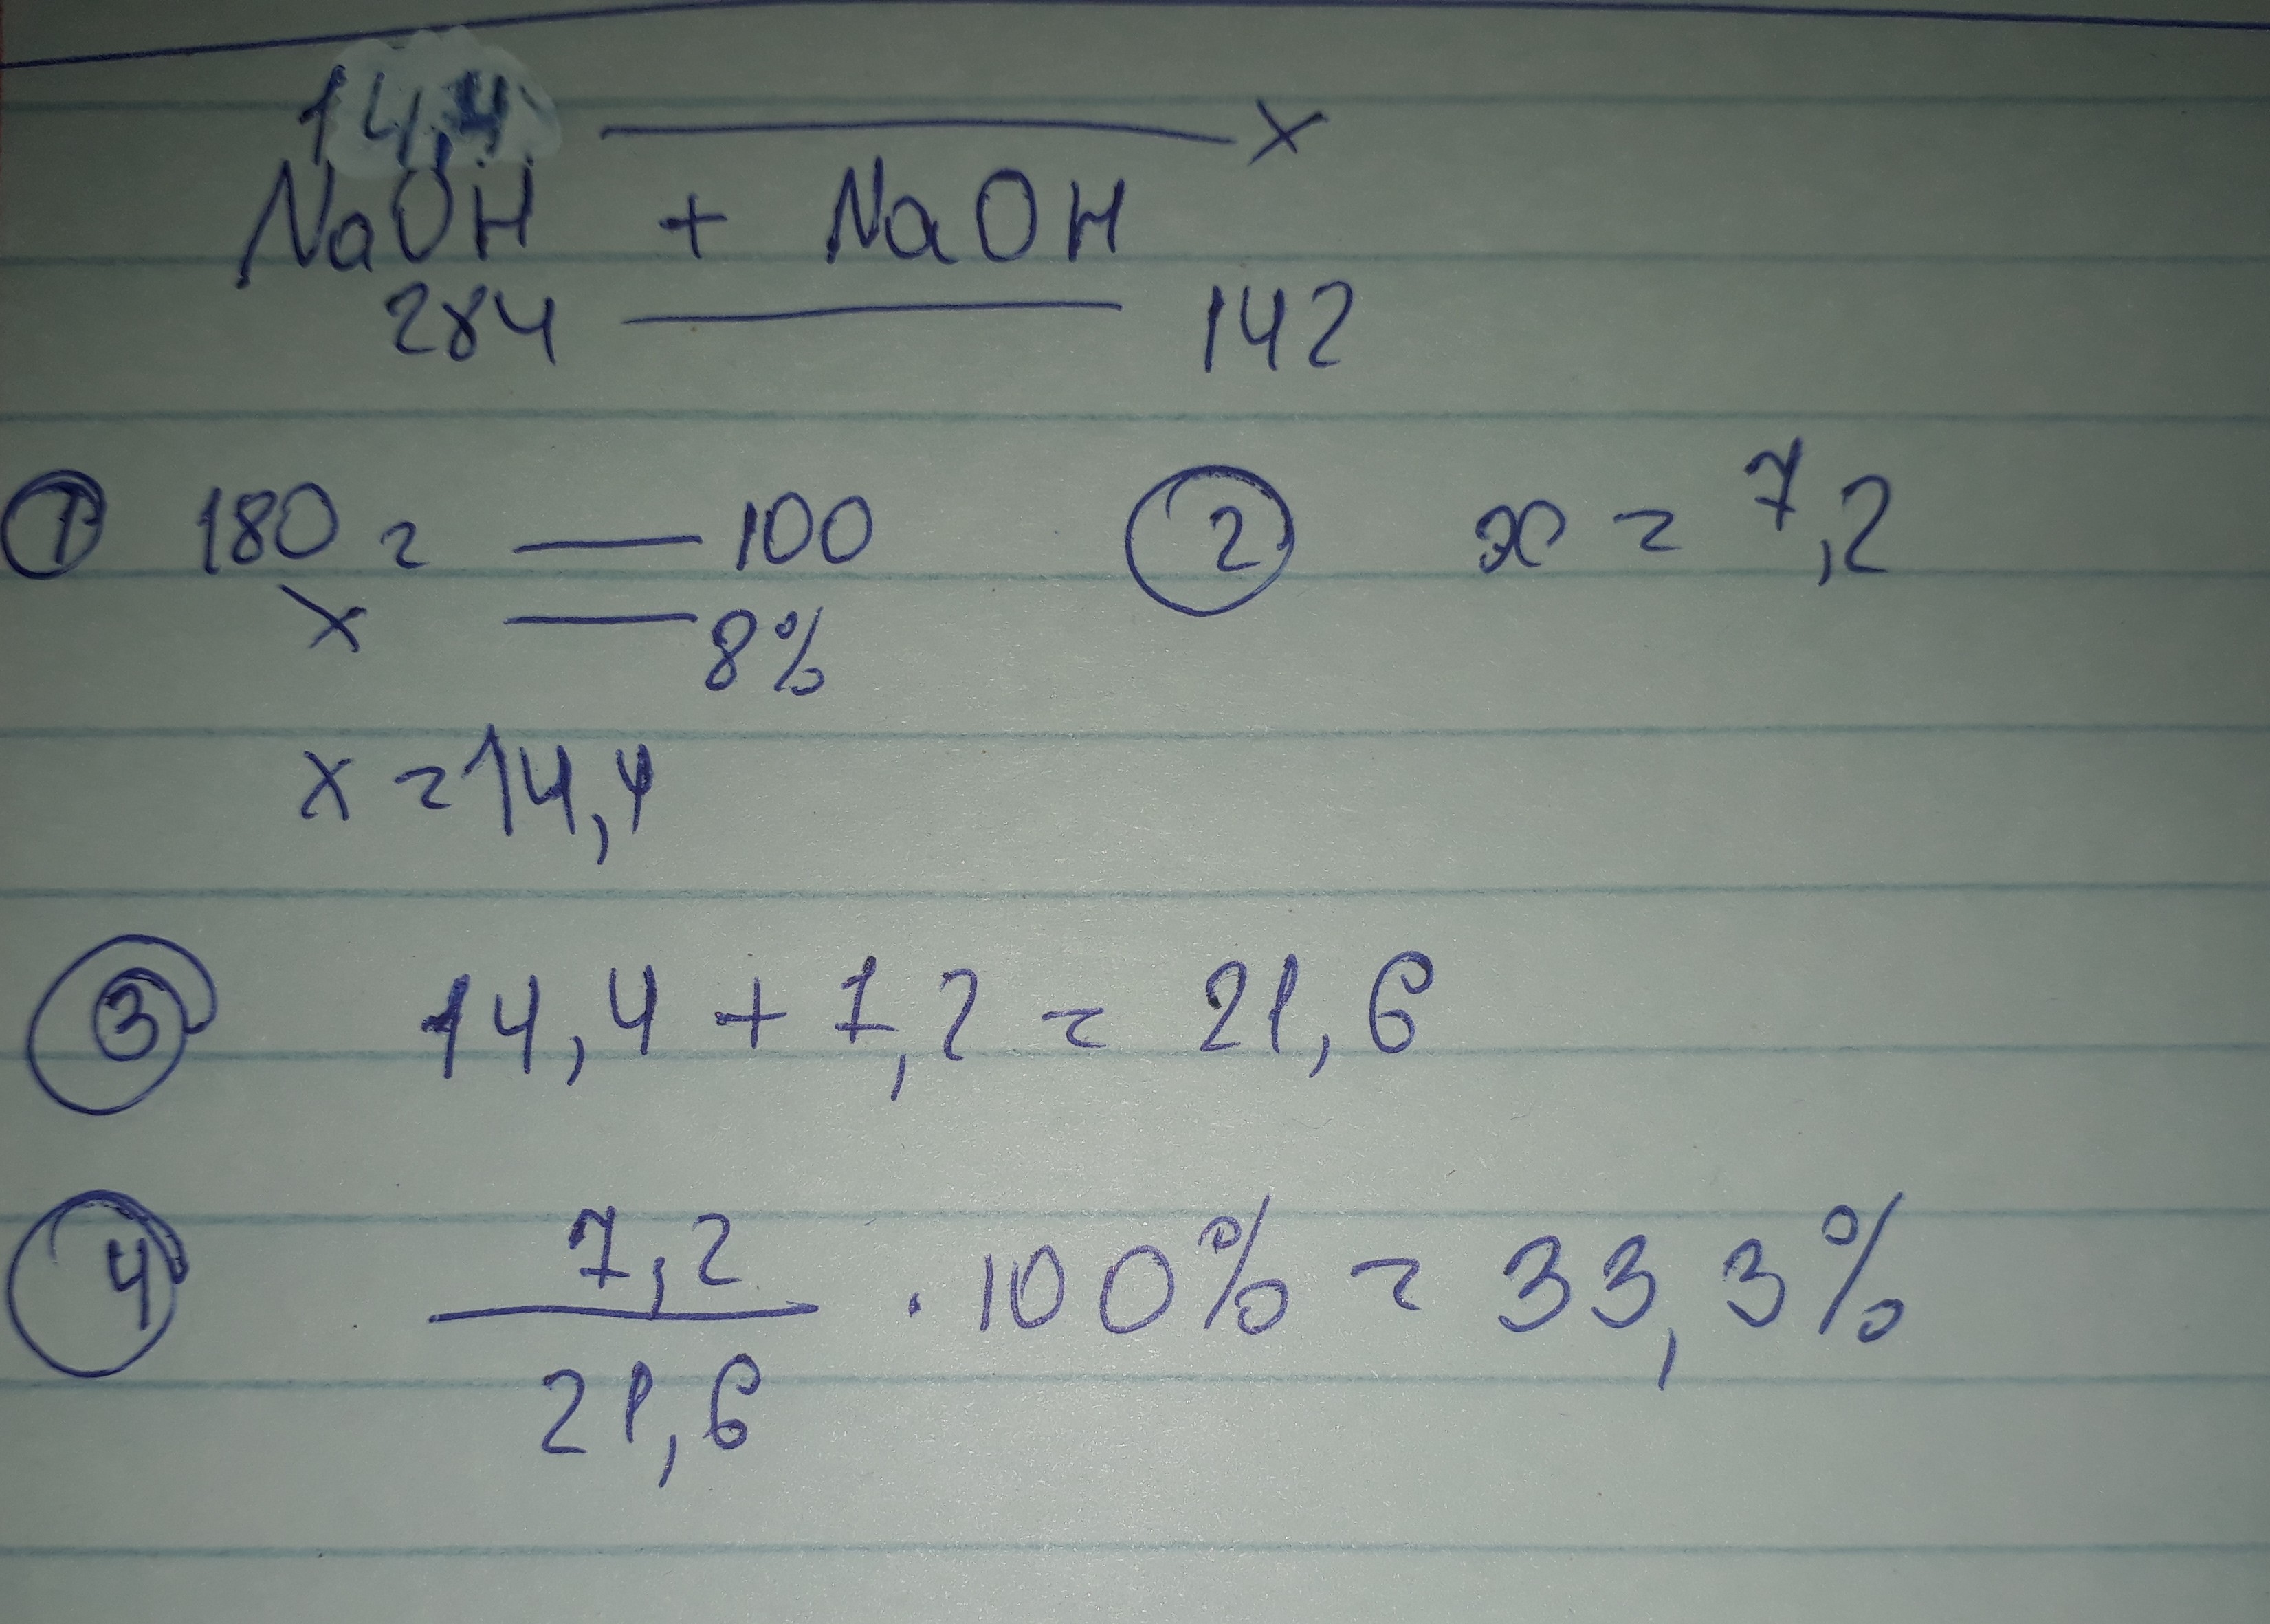 14,4 —— x
NaOH + NaOH
284 —— 142
① 180 г —— 100
x —— 8%
x = 14,4
② x = 7,2
③ 14,4 + 7,2 = 21,6
④ 7,2 / 21,6 · 100% = 33,3%